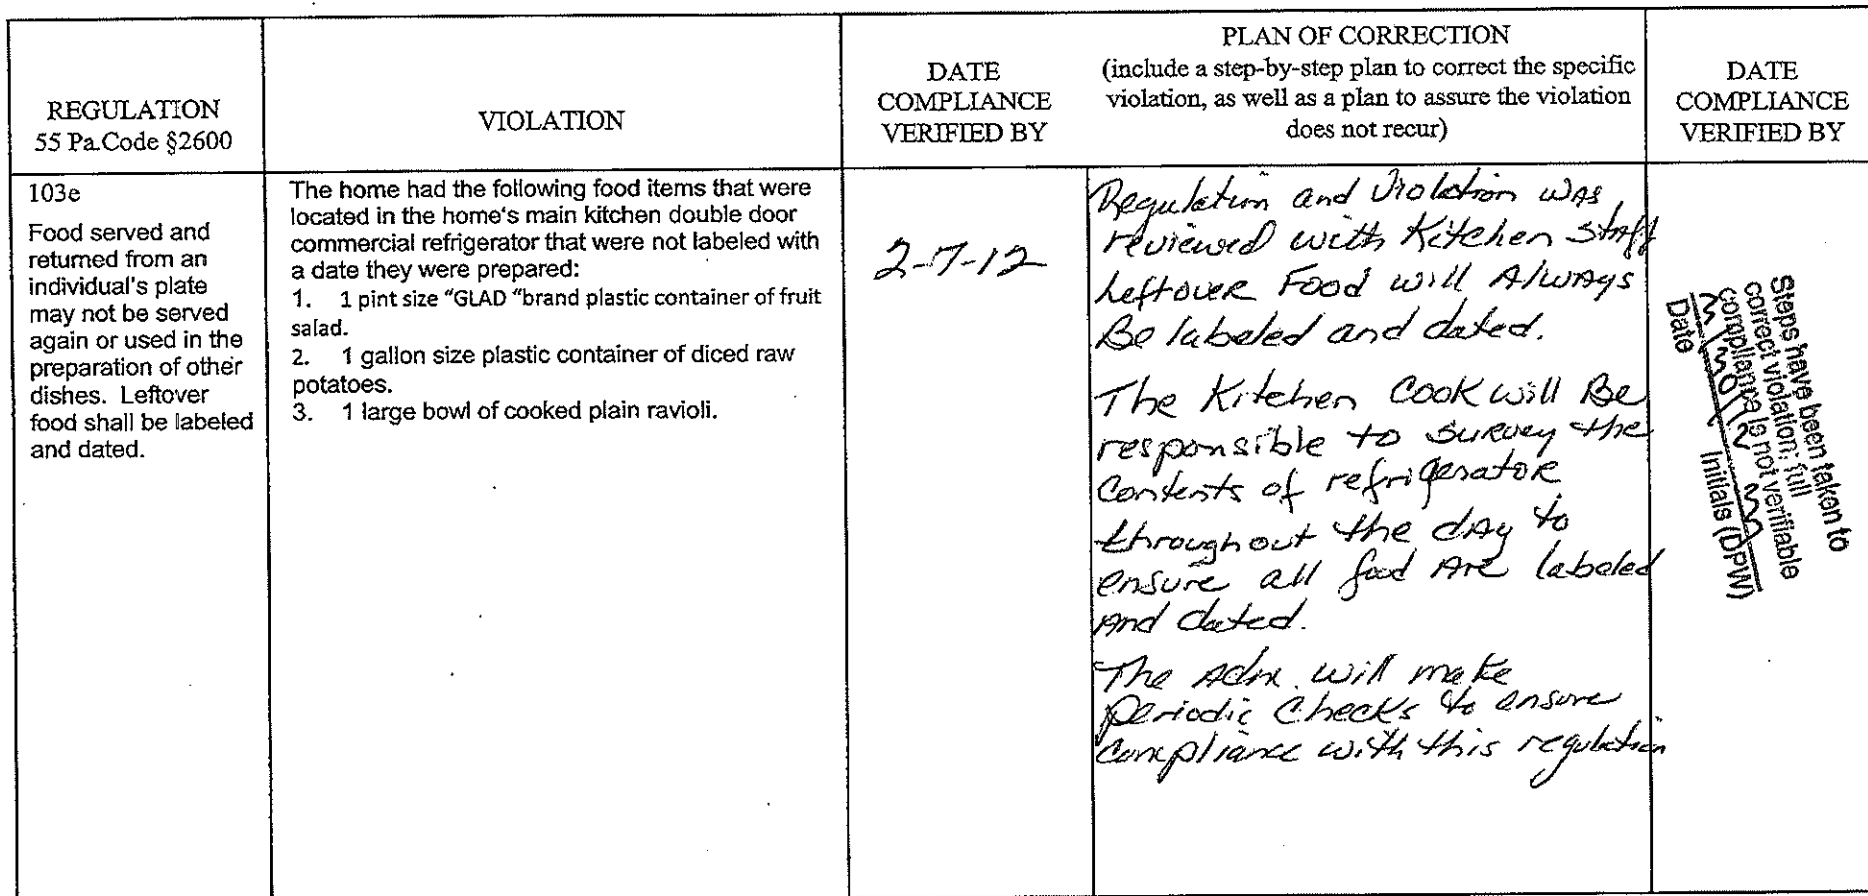 REGULATION
55 Pa.Code §2600
VIOLATION
DATE
COMPLIANCE
VERIFIED BY
PLAN OF CORRECTION
(include a step-by-step plan to correct the specific
violation, as well as a plan to assure the violation
does not recur)
DATE
COMPLIANCE
VERIFIED BY
103e
Food served and
returned from an
individual's plate
may not be served
again or used in the
preparation of other
dishes. Leftover
food shall be labeled
and dated.
The home had the following food items that were
located in the home's main kitchen double door
commercial refrigerator that were not labeled with
a date they were prepared:
1. 1 pint size "GLAD "brand plastic container of fruit
salad.
2. 1 gallon size plastic container of diced raw
potatoes.
3. 1 large bowl of cooked plain ravioli.
2-7-12
Regulation and Violation was
reviewed with Kitchen Staff
Leftover Food will Always
Be labeled and dated.
The Kitchen Cook will Be
responsible to survey the
Contents of refrigerator
throughout the day to
ensure all food Are labeled
and dated.
The Adm. will make
periodic Checks to ensure
compliance with this regulation
Steps have been taken to
correct violation; full
compliance is not verifiable
Date Initials (DPW)